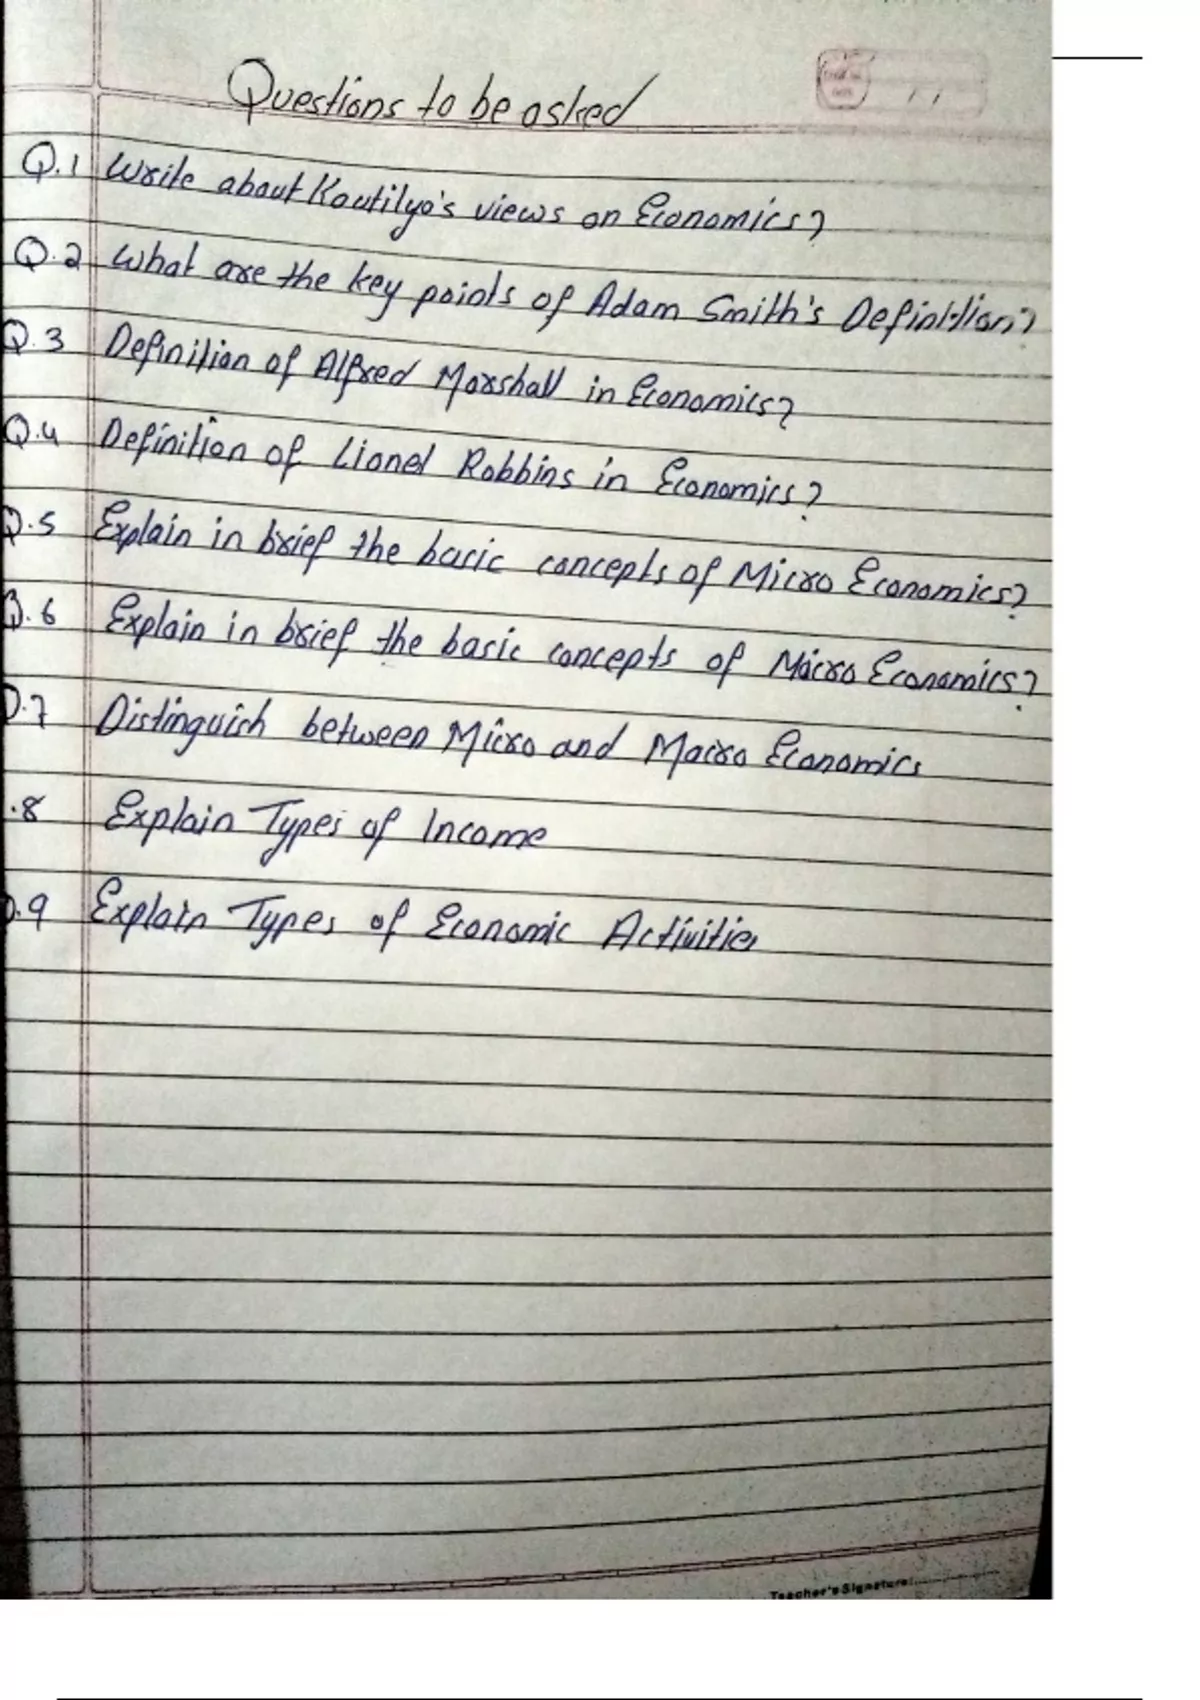 Questions to be asked
Q.1 Write about Kautilya's views on Economics?
Q.2 What are the key points of Adam Smith's Definition?
Q.3 Definition of Alfred Marshall in Economics?
Q.4 Definition of Lionel Robbins in Economics?
Q.5 Explain in brief the basic concepts of Micro Economics?
Q.6 Explain in brief the basic concepts of Macro Economics?
Q.7 Distinguish between Micro and Macro Economics
.8 Explain Types of Income
Q.9 Explain Types of Economic Activities
Teacher's Signature: